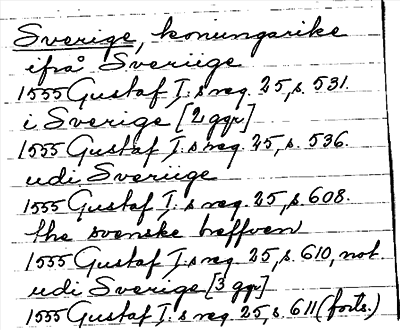 Sverige, konungarike
ifrå Sveriige
1555 Gustaf I:s reg. 25, s. 531.
i Sverige [2 ggr]
1555 Gustaf I:s reg. 25, s. 536.
udi Sveriige
1555 Gustaf I:s reg. 25, s. 608.
the svenske heffven
1555 Gustaf I:s reg. 25, s. 610, not.
udi Sverige [3 gr]
1555 Gustaf I:s reg. 25, s. 611 (forts.)